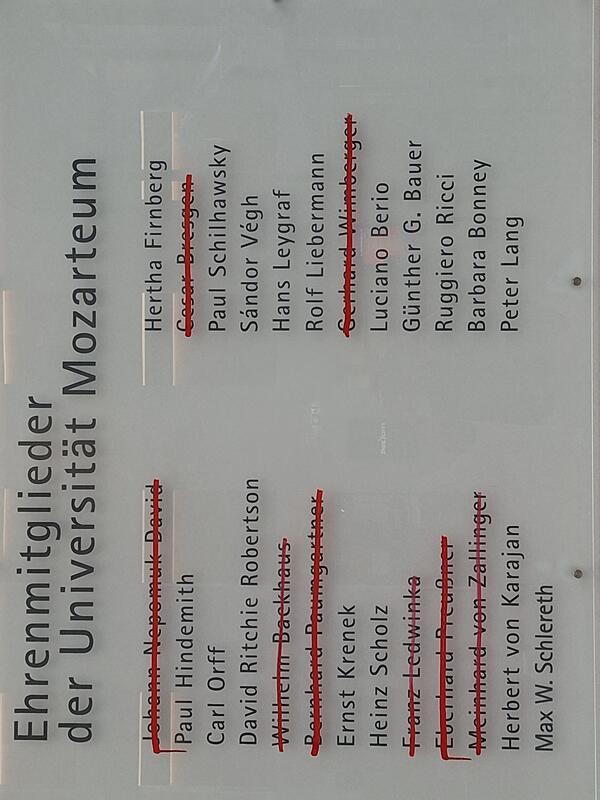 Ehrenmitglieder
der Universität Mozarteum
Johann Nepomuk David
Paul Hindemith
Carl Orff
David Ritchie Robertson
Wilhelm Backhaus
Bernhard Paumgartner
Ernst Krenek
Heinz Scholz
Franz Ledwinka
Eberhard Preußner
Meinhard von Zallinger
Herbert von Karajan
Max W. Schlereth
Hertha Firnberg
Cesar Bresgen
Paul Schilhawsky
Sándor Végh
Hans Leygraf
Rolf Liebermann
Gerhard Wimberger
Luciano Berio
Günther G. Bauer
Ruggiero Ricci
Barbara Bonney
Peter Lang